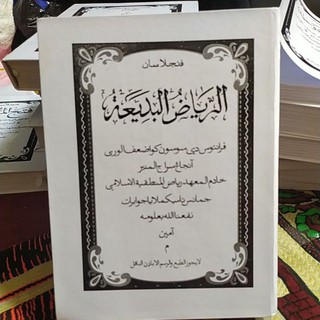 فنجلاسان
الرِّيَاضُ الْبَدِيْعَةُ
فرانتوس دري سوسون كو اضعف الورى
آنجاغ سراج المنير
خادم المعهد رياض المنطقية الاسلامي
جمانس تاسكملايا جوابرات
نفعنا الله بعلومه
آمين
م
لايجوز الطبع والرسم الا باذن الناقل